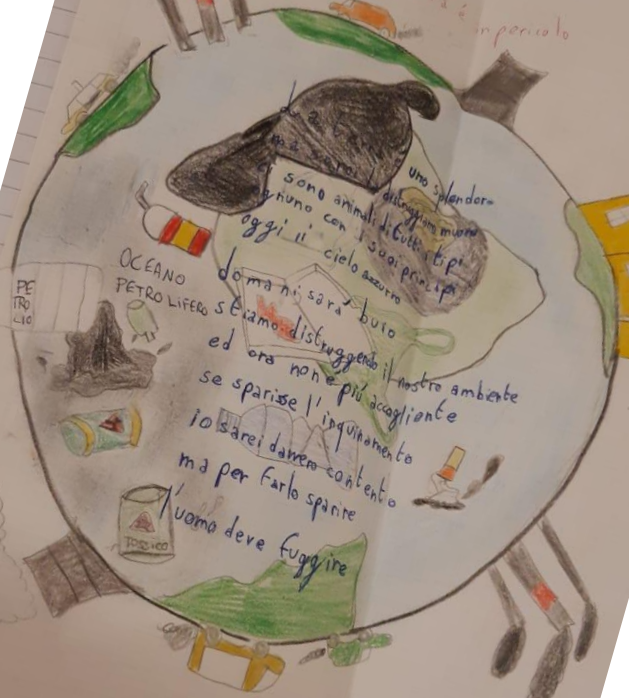 è
in pericolo
La terra
uno splendore
ma se noi la distruggiamo muore
ci sono animali di tutti i tipi
ognuno con i suoi principi
oggi il cielo azzurro
domani sará buio
stiamo distruggendo il nostro ambiente
ed ora non e più accagliente
se sparisse l'inquinamento
io sarei davvero contento
ma per farlo sparire
l'uomo deve fuggire
OCEANO
PETROLIFERO
PE
TRO
LIO
TOSSICO